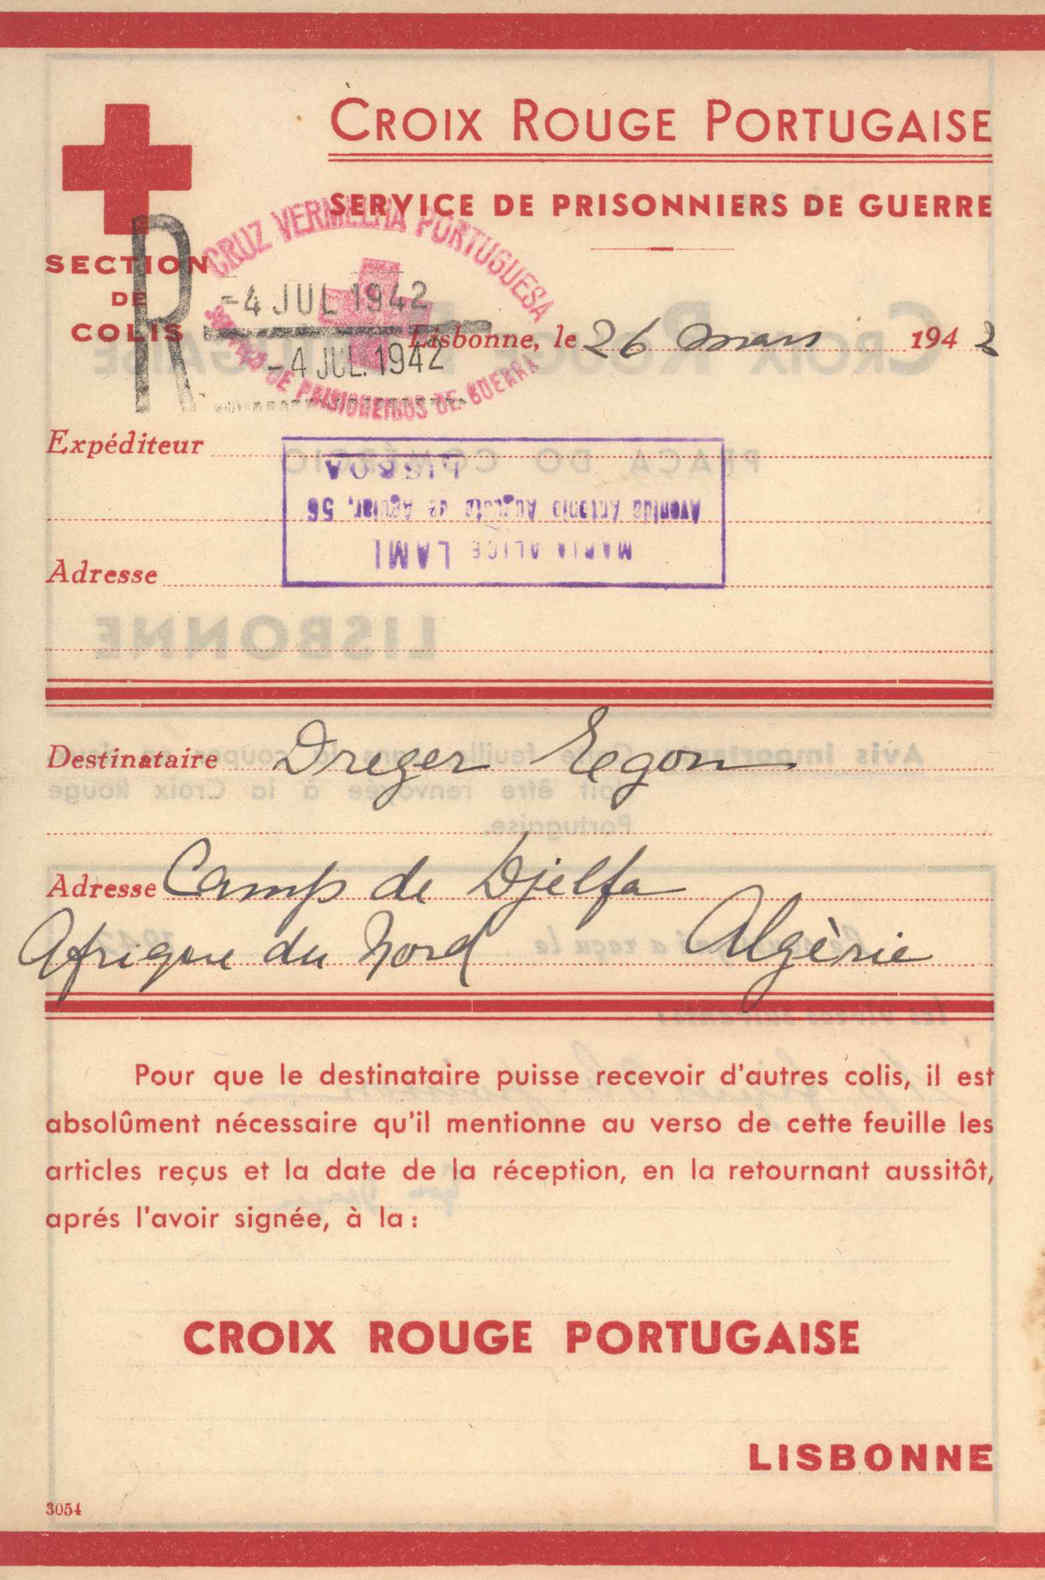 CROIX ROUGE PORTUGAISE
SERVICE DE PRISONNIERS DE GUERRE
SECTION
DE
COLIS
R
CRUZ VERMELHA PORTUGUESA
-4 JUL 1942
-4 JUL. 1942
DE PRISIONEIROS DE GUERRA
Lisbonne, le 26 mars 1942
Expéditeur
MARIA ALICE LAMI
Avenida Antonio Augusto de Aguiar, 56
LISBOA
Adresse
Destinataire Dreger Egon
Adresse Camp de Djelfa
Afrique du Nord Algèrie
Pour que le destinataire puisse recevoir d'autres colis, il est
absolûment nécessaire qu'il mentionne au verso de cette feuille les
articles reçus et la date de la réception, en la retournant aussitôt,
aprés l'avoir signée, à la:
CROIX ROUGE PORTUGAISE
LISBONNE
3054